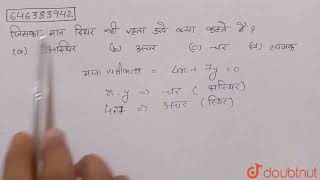 646383942
जिसका मान स्थिर नहीं रहता उसे क्या कहते हैं?
(a) अस्थिर (b) अचर (c) चर (d) व्यंजक
माना समीकरण = 4x + 7y = 0
x, y => चर (अस्थिर)
4, 7 => अचर (स्थिर)
doubtnut